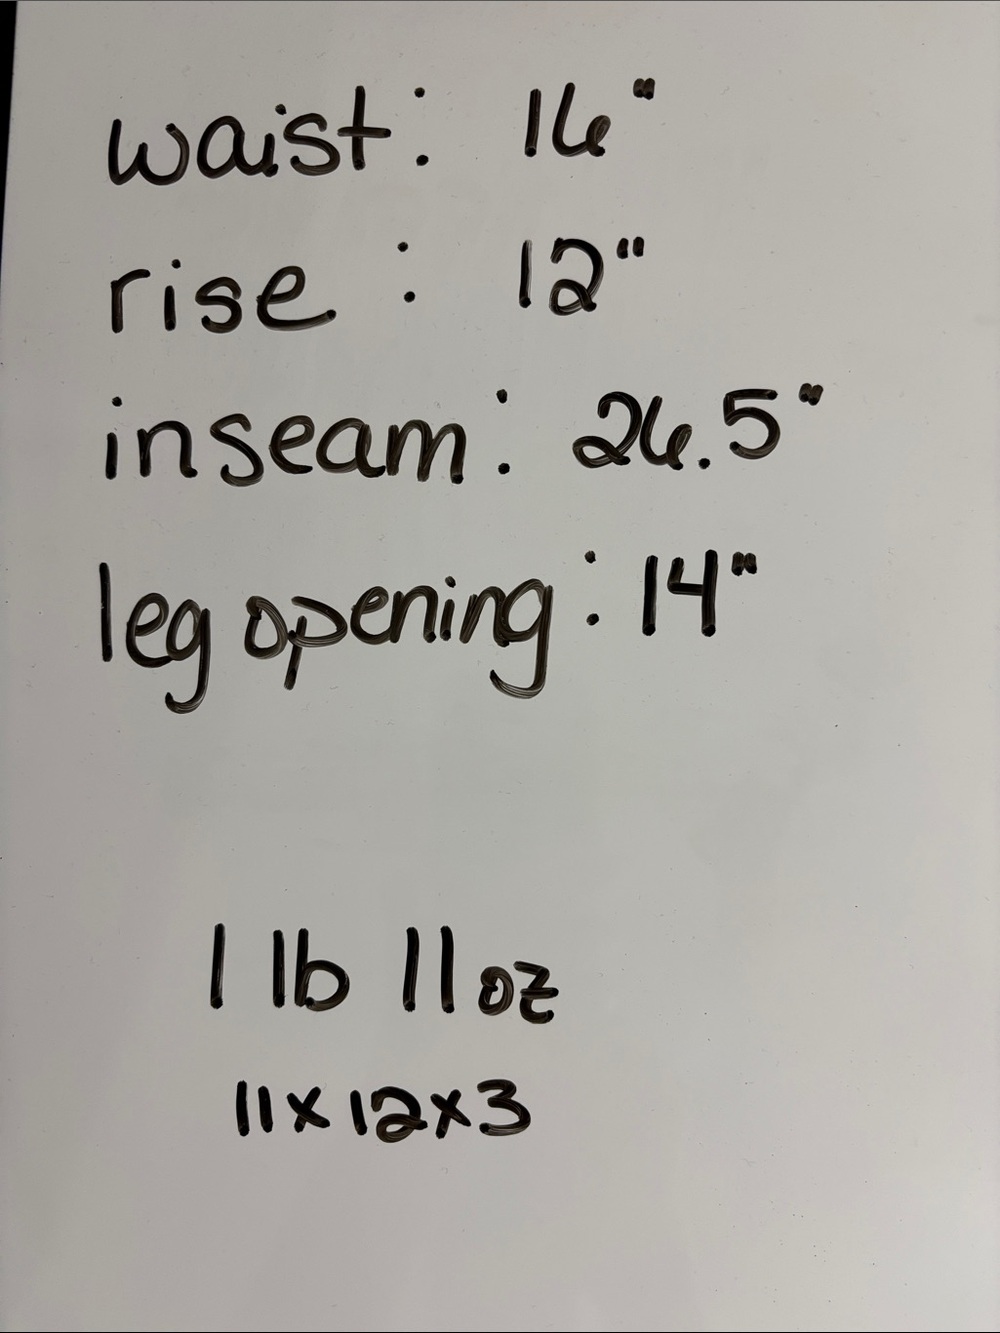 waist: 16"
rise : 12"
inseam: 26.5"
leg opening: 14"
1 lb 11 oz
11x12x3